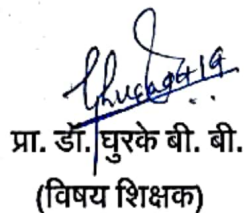 प्रा. डॉ. घुरके बी. बी.
(विषय शिक्षक)